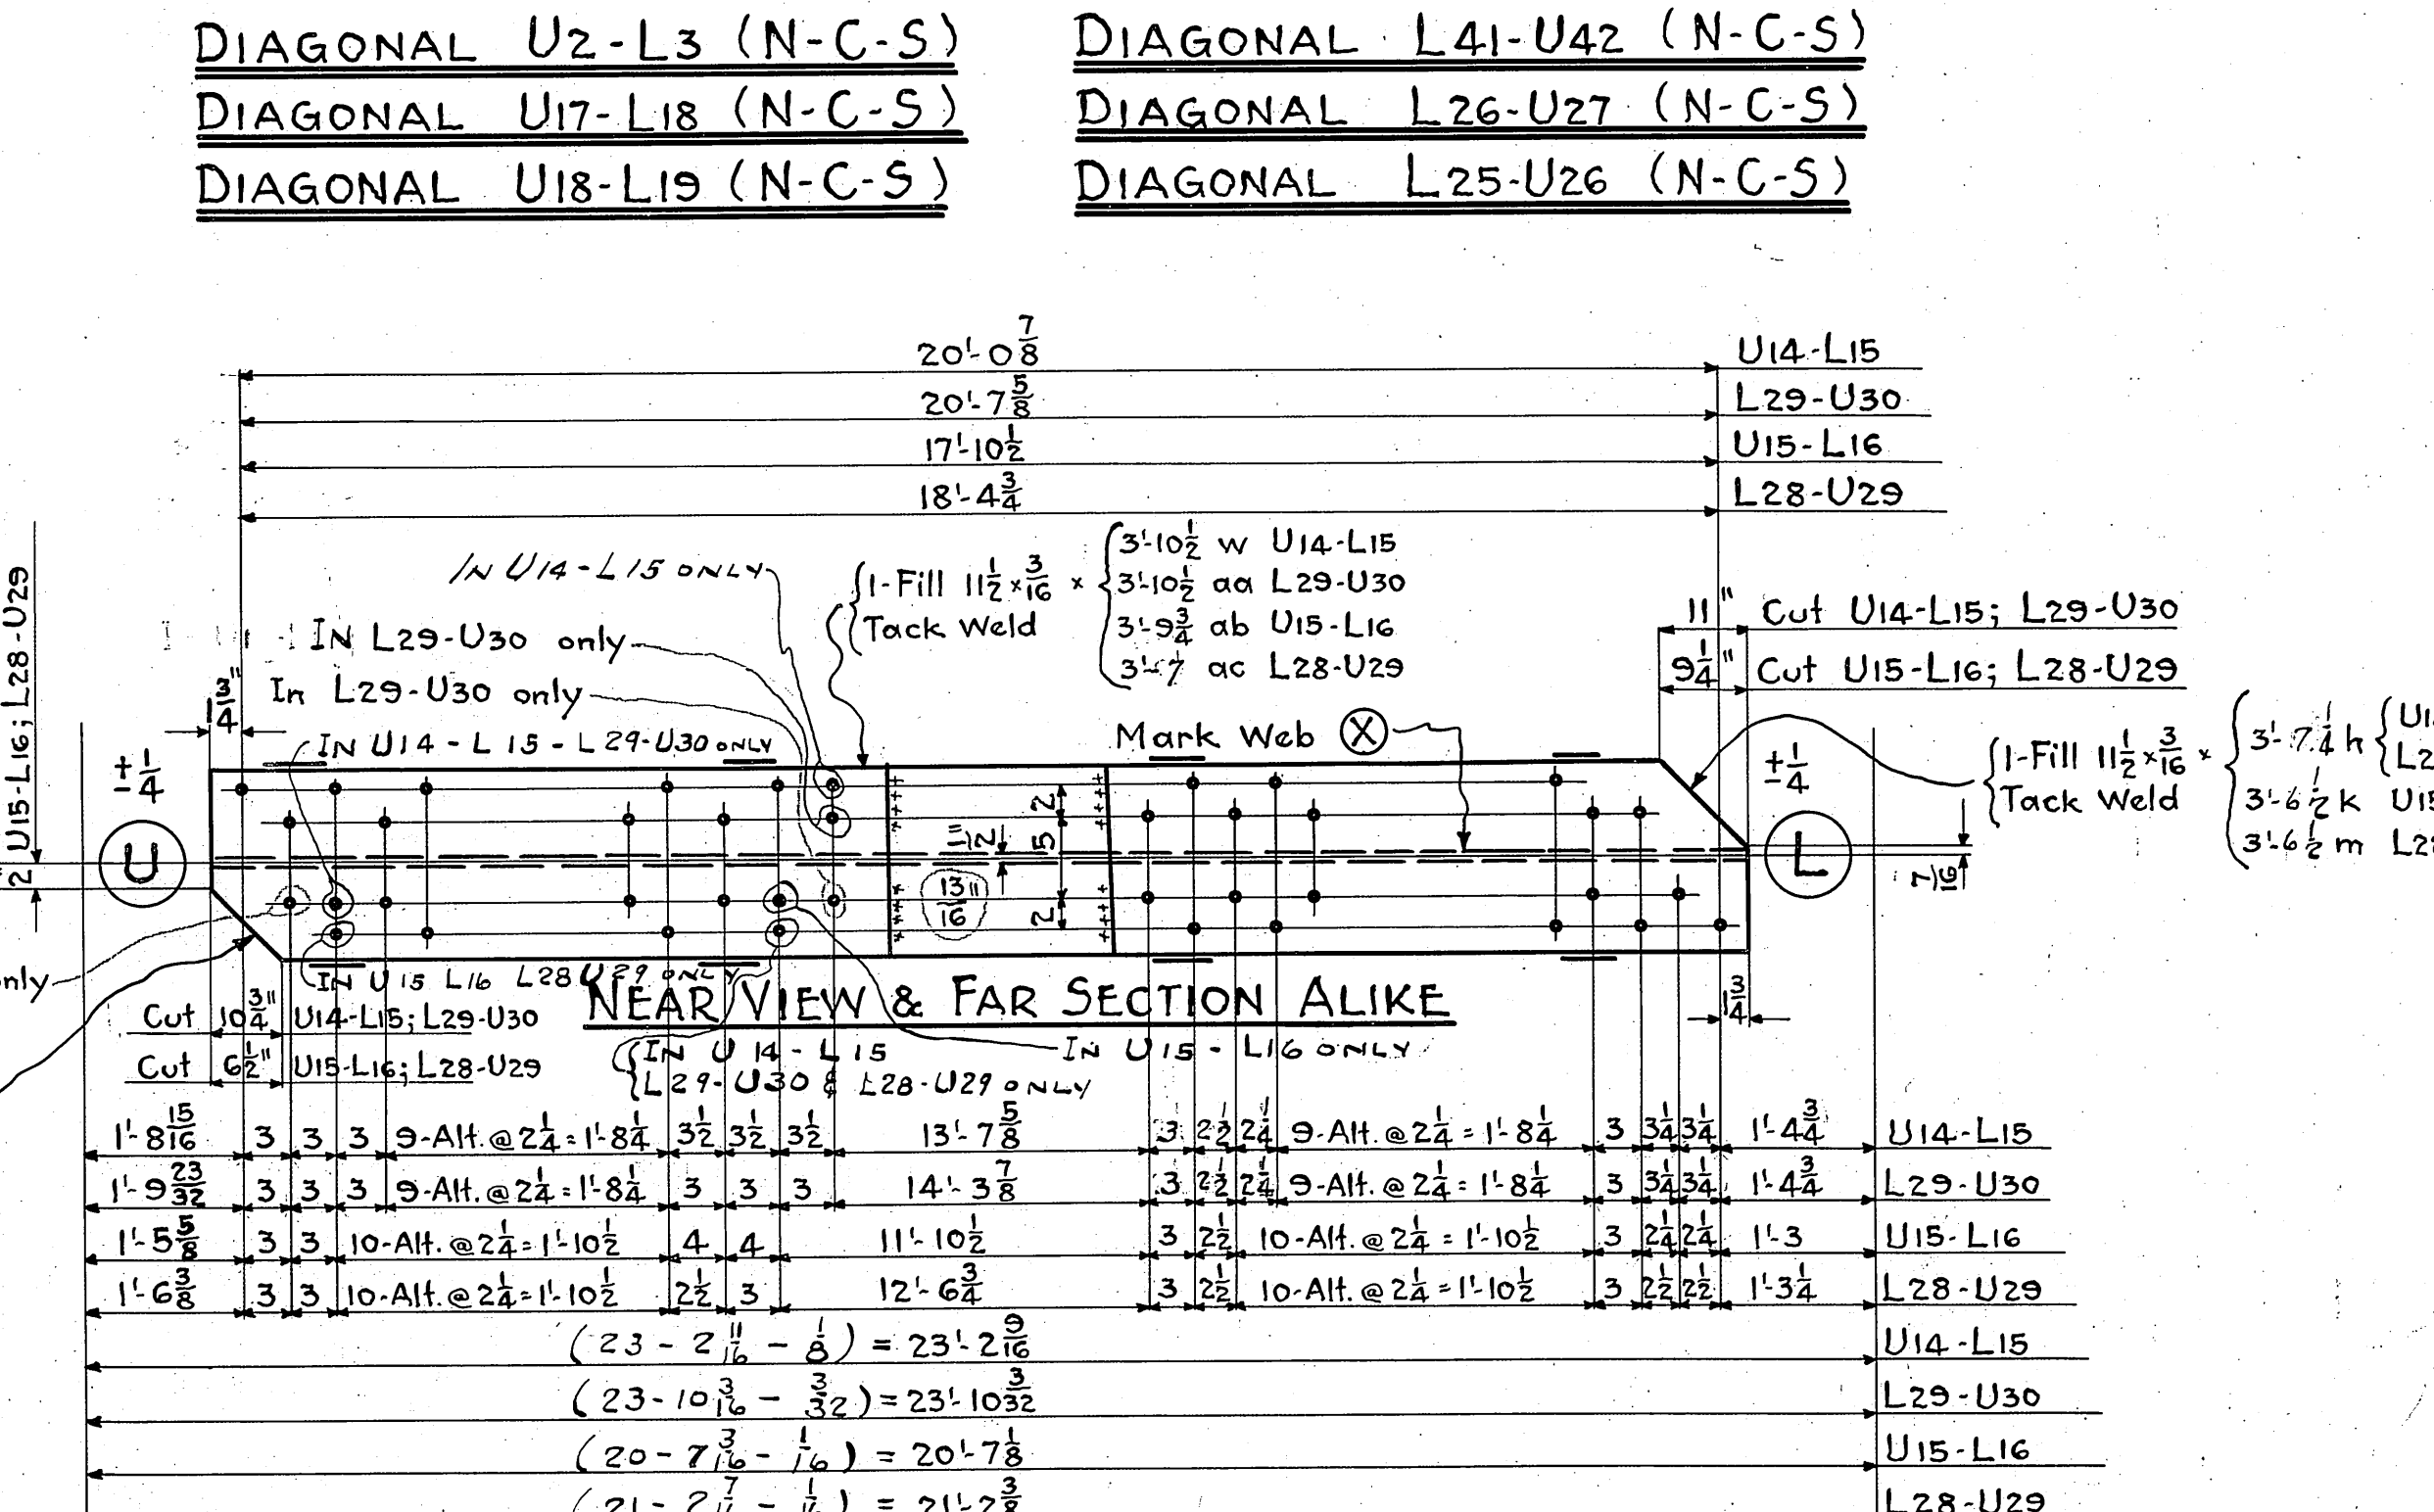 DIAGONAL U2-L3 (N-C-S)
DIAGONAL L41-U42 (N-C-S)
DIAGONAL U17-L18 (N-C-S)
DIAGONAL L26-U27 (N-C-S)
DIAGONAL U18-L19 (N-C-S)
DIAGONAL L25-U26 (N-C-S)
20'-0 7/8 U14-L15
20'-7 5/8 L29-U30
17'-10 1/2 U15-L16
18'-4 3/4 L28-U29
U15-L16; L28-U29
2
IN U14-L15 ONLY
IN L29-U30 only
In L29-U30 only
IN U14-L15-L29-U30 ONLY
1-Fill 11 1/2 x 3/16 x
Tack Weld
3'-10 1/2 w U14-L15
3'-10 1/2 aa L29-U30
3'-9 3/4 ab U15-L16
3'-7 ac L28-U29
11" Cut U14-L15; L29-U30
9 1/4" Cut U15-L16; L28-U29
1 3/4"
± 1/4
U
Mark Web X
± 1/4
L
1-Fill 11 1/2 x 3/16 x
Tack Weld
3'-7 1/4 h
3'-6 1/2 k
3'-6 1/2 m
2
5
1/2"
13/16"
2
7/16
1 3/4
only
IN U15 L16 L28 U29 ONLY
NEAR VIEW & FAR SECTION ALIKE
Cut 10 3/4" U14-L15; L29-U30
Cut 6 1/2" U15-L16; L28-U29
IN U14-L15
L29-U30 & L28-U29 ONLY
IN U15-L16 ONLY
1'-8 15/16 3 3 3 9-Alt. @ 2 1/4 = 1'-8 1/4 3 1/2 3 1/2 3 1/2 13'-7 5/8 3 2 1/2 2 1/4 9-Alt. @ 2 1/4 = 1'-8 1/4 3 3 1/4 3 1/4 1'-4 3/4 U14-L15
1'-9 23/32 3 3 3 9-Alt. @ 2 1/4 = 1'-8 1/4 3 3 3 14'-3 7/8 3 2 1/2 2 1/4 9-Alt. @ 2 1/4 = 1'-8 1/4 3 3 1/4 3 1/4 1'-4 3/4 L29-U30
1'-5 5/8 3 3 10-Alt. @ 2 1/4 = 1'-10 1/2 4 4 11'-10 1/2 3 2 1/2 10-Alt. @ 2 1/4 = 1'-10 1/2 3 2 1/4 2 1/4 1'-3 U15-L16
1'-6 3/8 3 3 10-Alt. @ 2 1/4 = 1'-10 1/2 2 1/2 3 12'-6 3/4 3 2 1/2 10-Alt. @ 2 1/4 = 1'-10 1/2 3 2 1/2 2 1/2 1'-3 1/4 L28-U29
(23-2 11/16 - 1/8) = 23'-2 9/16 U14-L15
(23-10 3/16 - 3/32) = 23'-10 3/32 L29-U30
(20-7 3/16 - 1/16) = 20'-7 1/8 U15-L16
21'-2 3/8 L28-U29